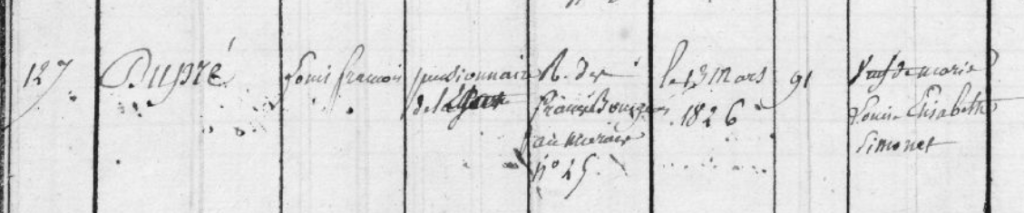 127 Dupré Louis françois pensionnaire R. des le 13 Mars 91 Veuf de marie
de l'État francs Bourgeois 1826 Louise Elisabeth
au marais Simonet
n° 25.